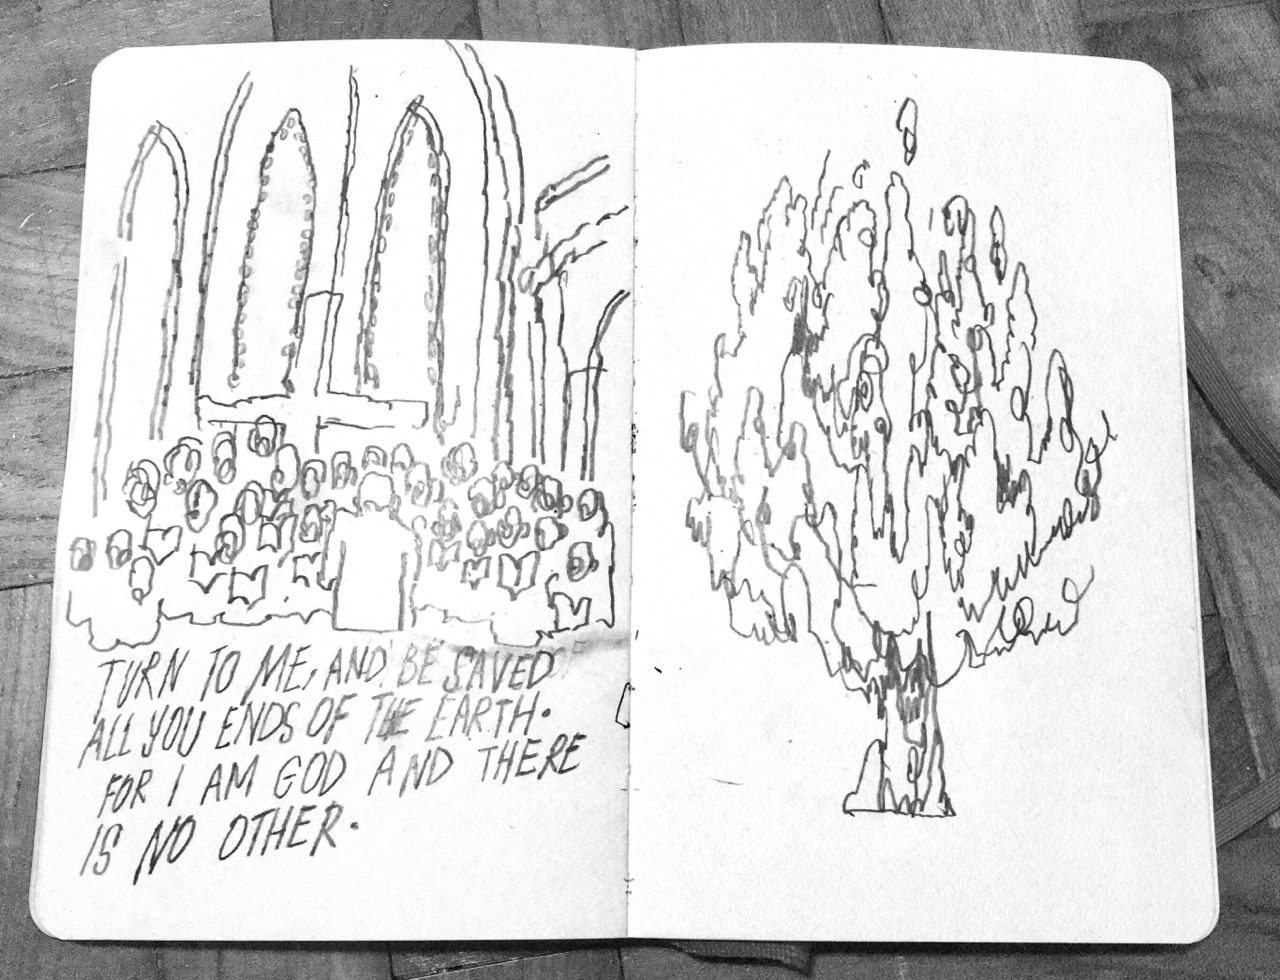 TURN TO ME, AND BE SAVED
ALL YOU ENDS OF THE EARTH.
FOR I AM GOD AND THERE
IS NO OTHER.